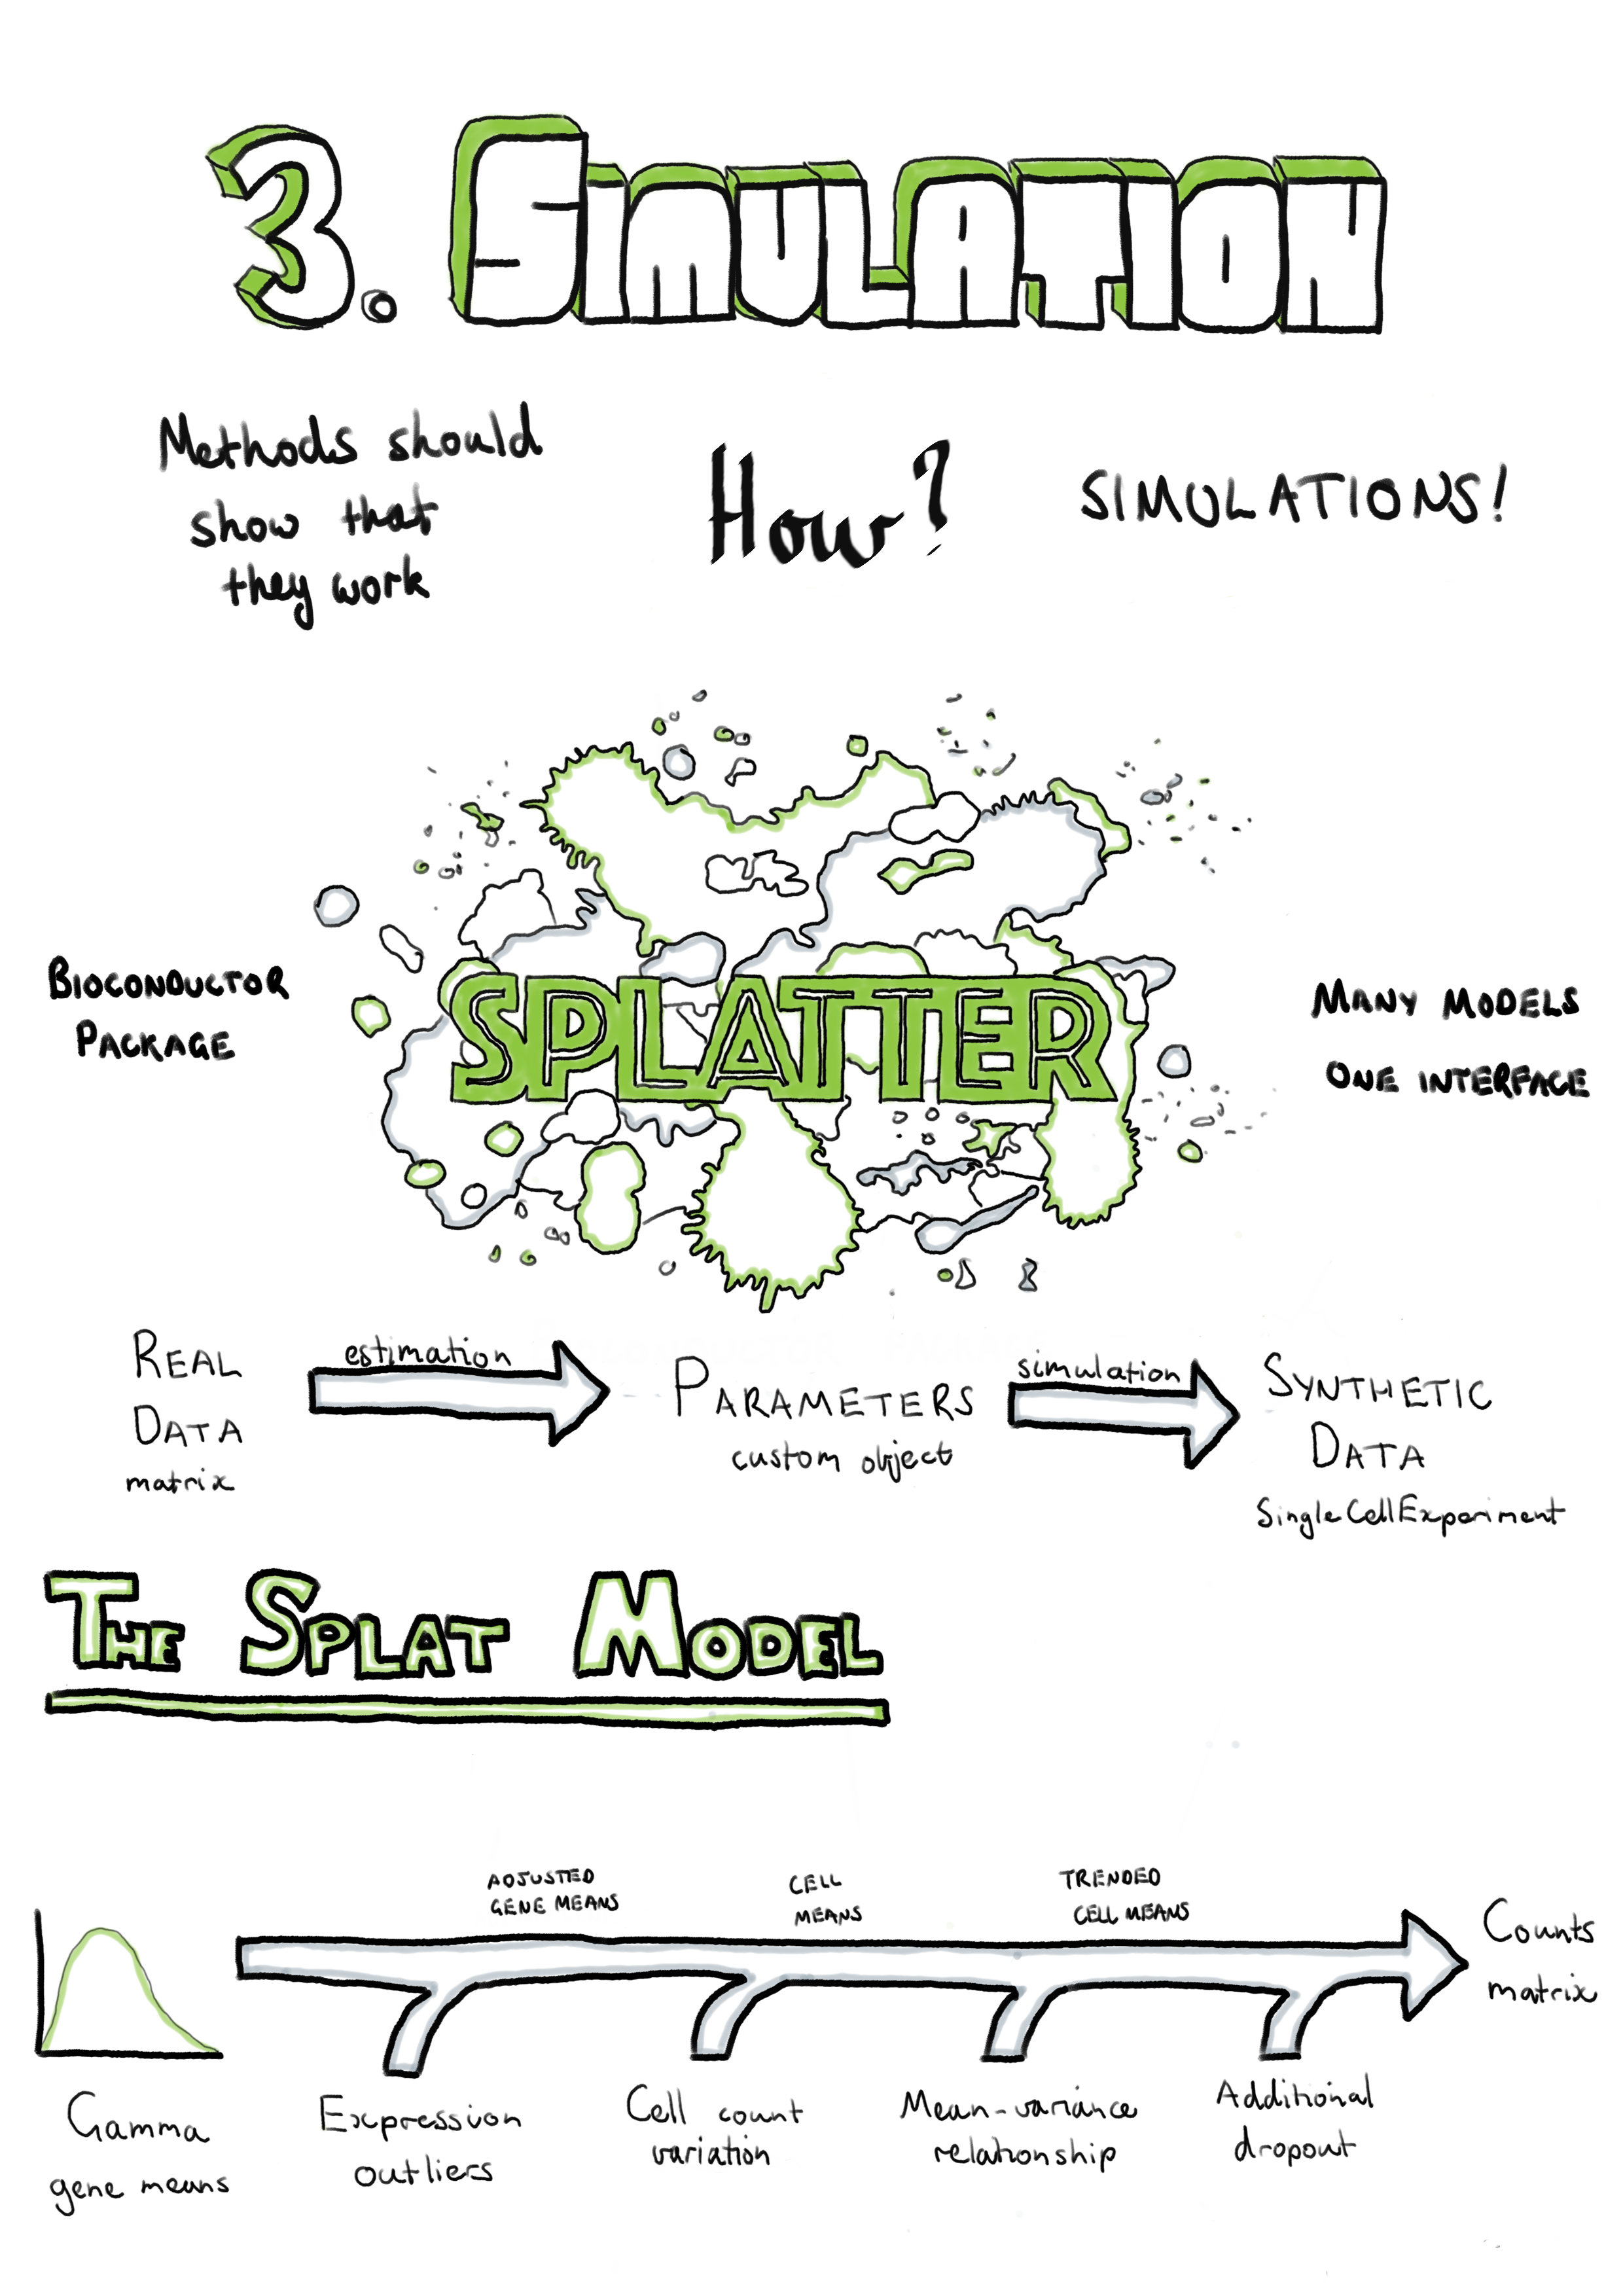 3. SIMULATION
Methods should
show that
they work
How?
SIMULATIONS!
BIOCONDUCTOR
PACKAGE
SPLATTER
MANY MODELS
ONE INTERFACE
REAL
DATA
matrix
estimation
PARAMETERS
custom object
simulation
SYNTHETIC
DATA
SingleCellExperiment
THE SPLAT MODEL
ADJUSTED
GENE MEANS
CELL
MEANS
TRENDED
CELL MEANS
Counts
matrix
Gamma
gene means
Expression
outliers
Cell count
variation
Mean-variance
relationship
Additional
dropout